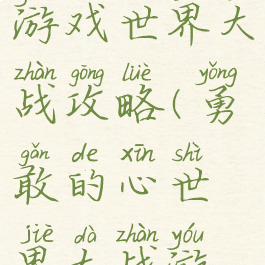 游戏世界大
zhàn gōng lüè yǒng
战攻略(勇
gǎn de xīn shì
敢的心世
jiè dà zhàn yóu
界大战游